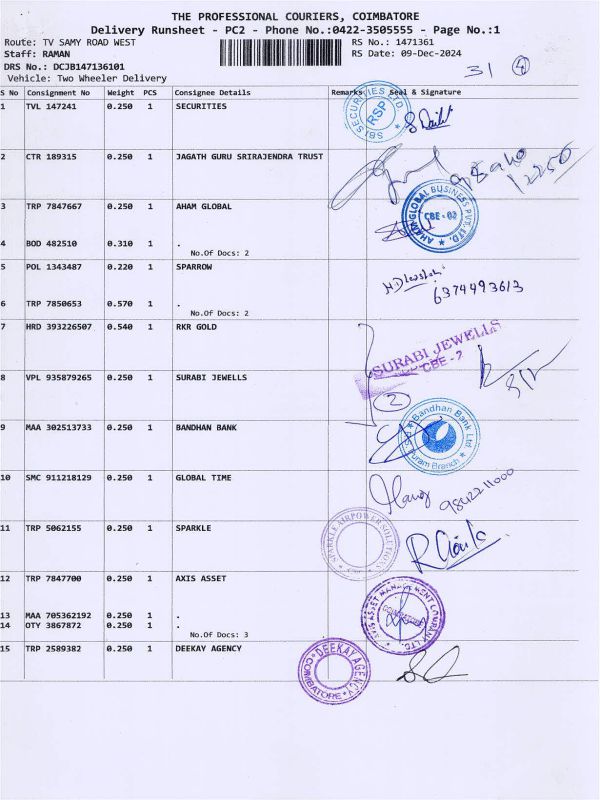 THE PROFESSIONAL COURIERS, COIMBATORE
Delivery Runsheet - PC2 - Phone No.:0422-3505555 - Page No.:1
Route: TV SAMY ROAD WEST RS No.: 1471361
Staff: RAMAN RS Date: 09-Dec-2024
DRS No.: DCJB147136101
Vehicle: Two Wheeler Delivery
31 4
S No Consignment No Weight PCS Consignee Details Remarks Seal & Signature
1 TVL 147241 0.250 1 SECURITIES
SBI SECURITIES LTD.
RSP
2 CTR 189315 0.250 1 JAGATH GURU SRIRAJENDRA TRUST
12250
3 TRP 7847667 0.250 1 AHAM GLOBAL
AHAM GLOBAL BUSINESS PVT. LTD.
CBE - 02
4 BOD 482510 0.310 1 .
No.Of Docs: 2
5 POL 1343487 0.220 1 SPARROW
6374493613
6 TRP 7850653 0.570 1 .
No.Of Docs: 2
7 HRD 393226507 0.540 1 RKR GOLD
SURABI JEWELLS
CBE - 2
8 VPL 935879265 0.250 1 SURABI JEWELLS
2
9 MAA 302513733 0.250 1 BANDHAN BANK
Bandhan Bank Ltd
Puram Branch
10 SMC 911218129 0.250 1 GLOBAL TIME
9842211000
11 TRP 5062155 0.250 1 SPARKLE
SPARKLE AIRPOWER SOLUTIONS
12 TRP 7847700 0.250 1 AXIS ASSET
AXIS ASSET MANAGEMENT COMPANY LTD.
13 MAA 705362192 0.250 1 .
14 OTY 3867872 0.250 1 .
No.Of Docs: 3
15 TRP 2589382 0.250 1 DEEKAY AGENCY
DEEKAY AGENCY
COIMBATORE